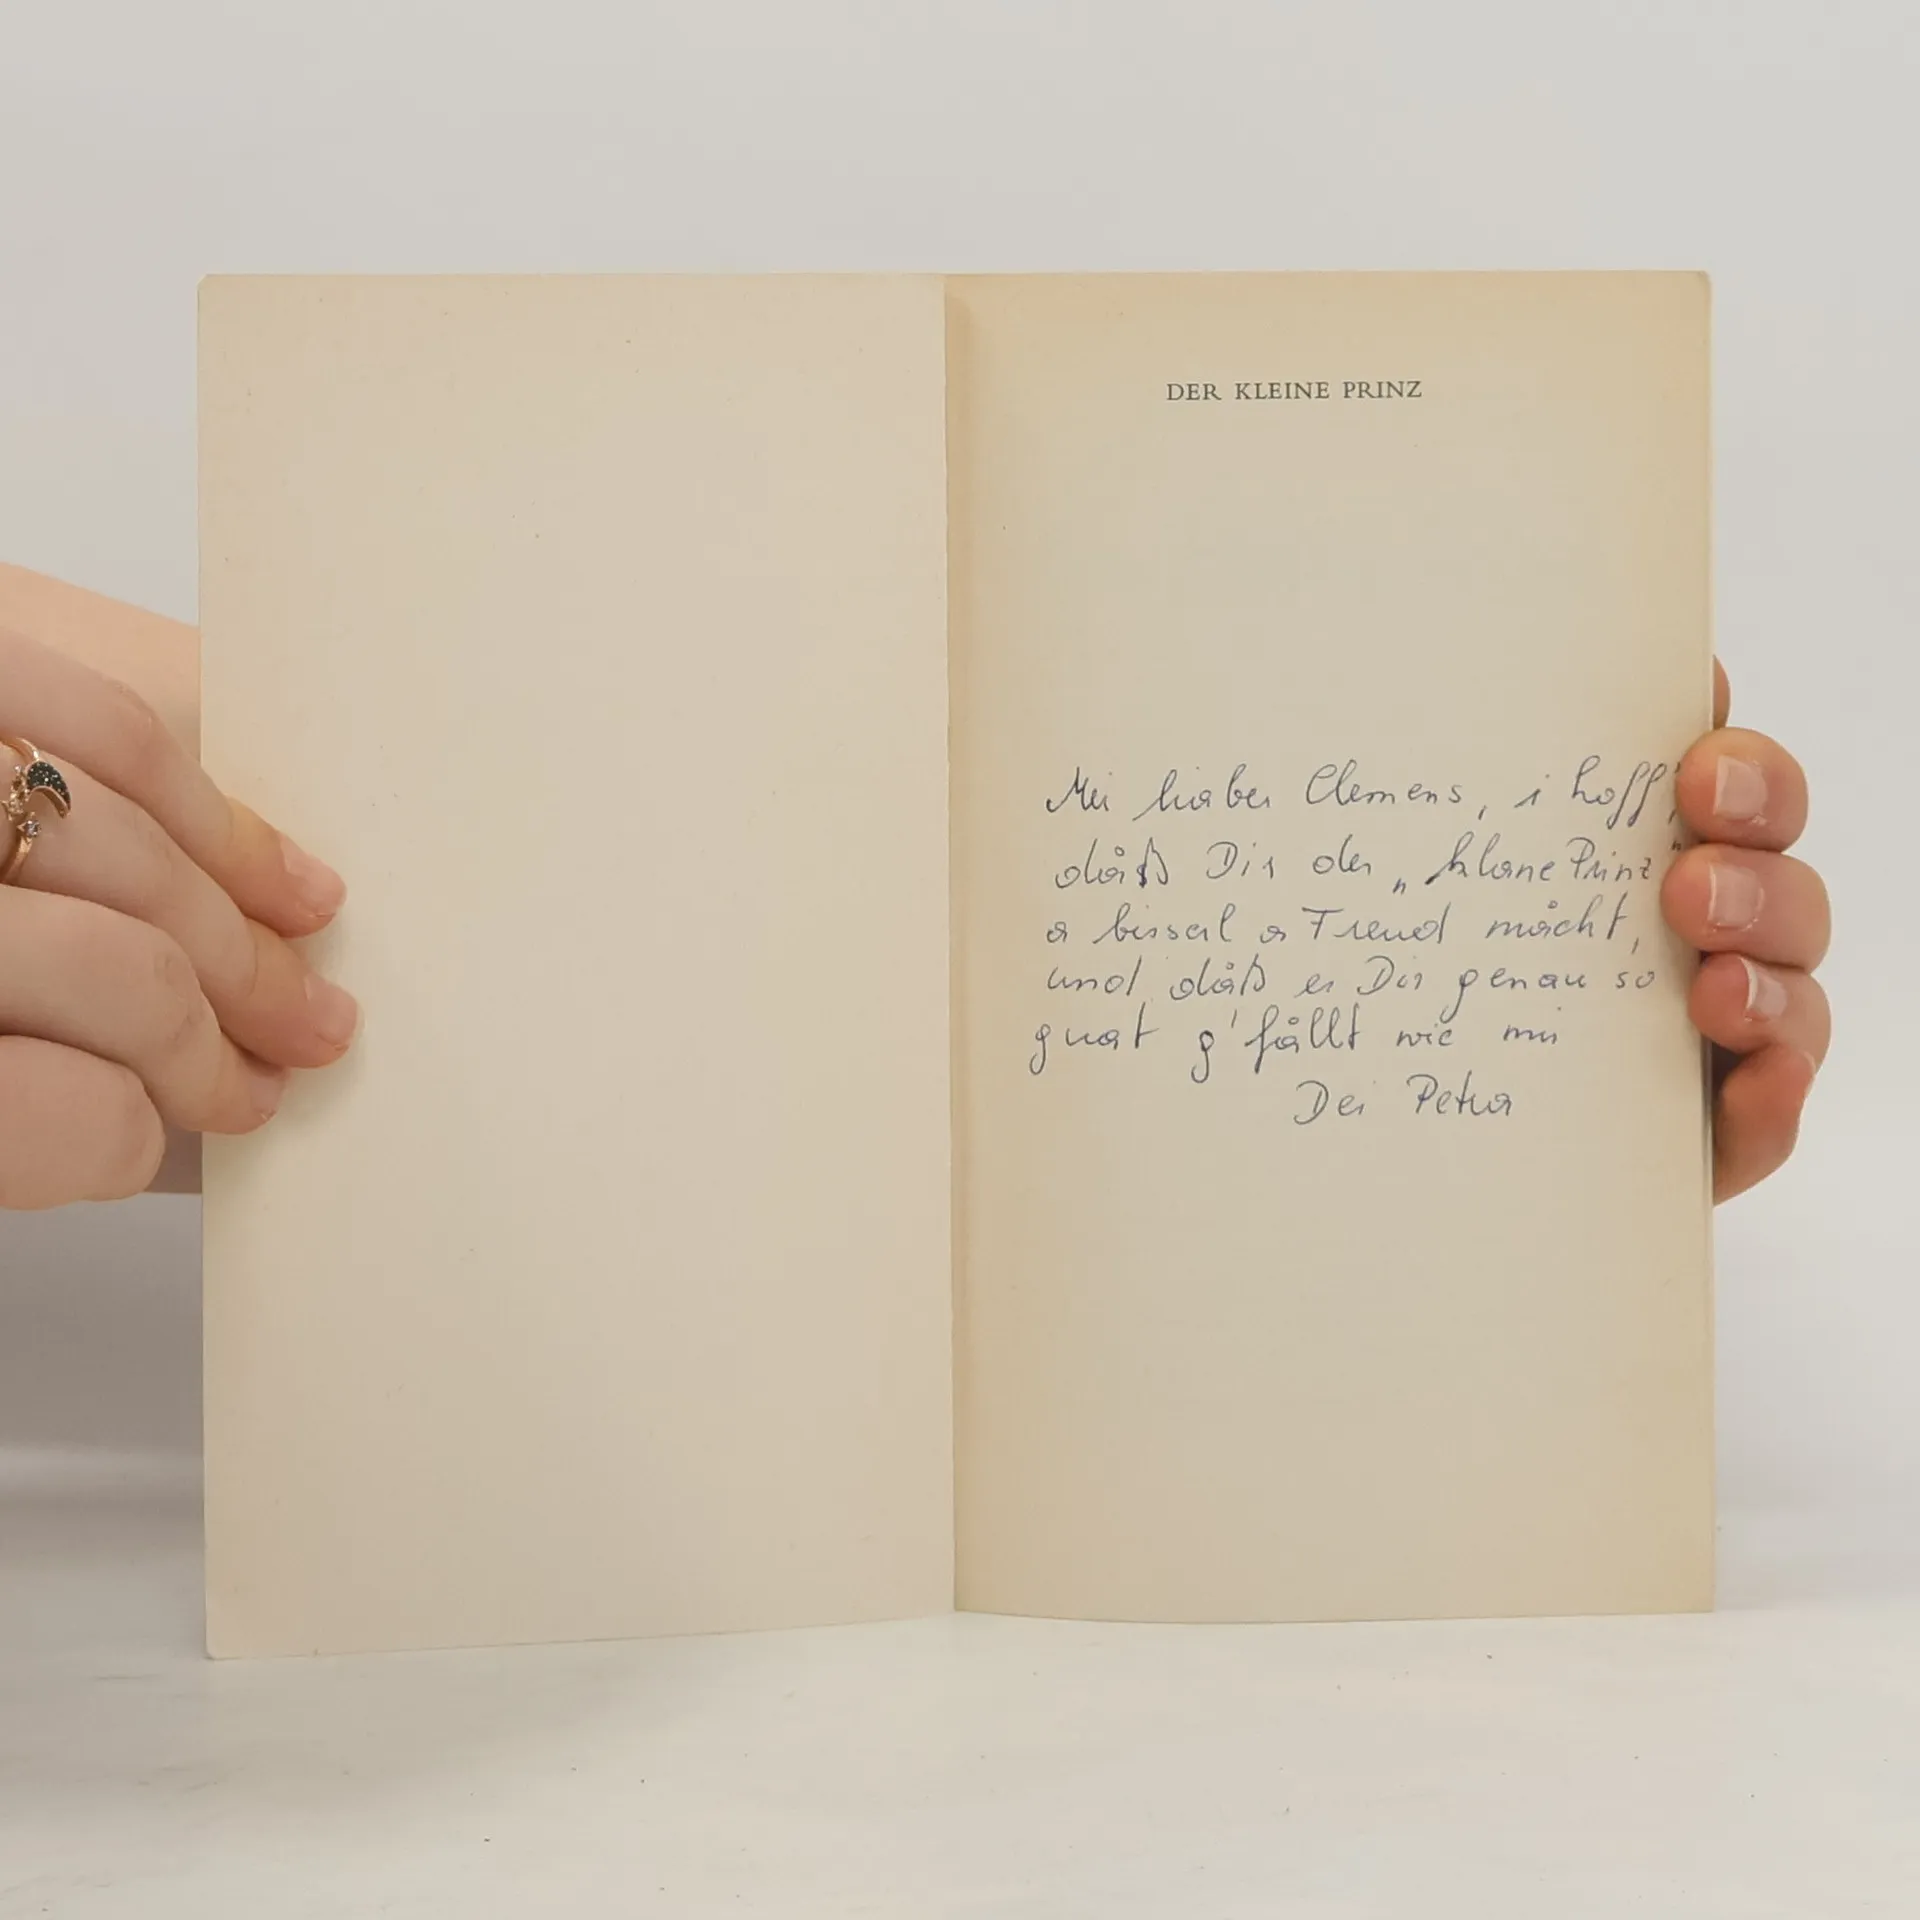 DER KLEINE PRINZ
Mei liaber Clemens, i hoff',
dåß Dir der „klane Prinz"
a bisserl a Freud måcht,
und dåß er Dir genau so
guat g'fållt wie mir
Dei Petra